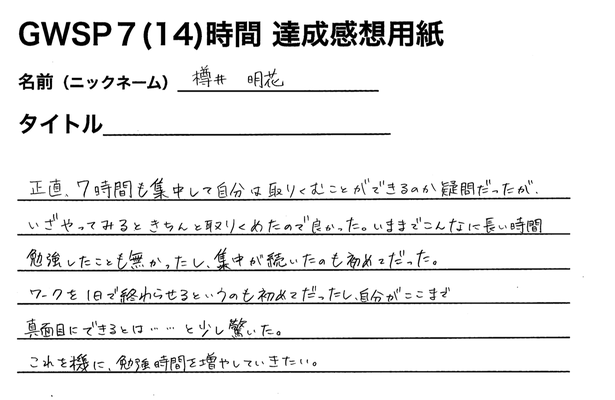 GWSP7(14)時間 達成感想用紙
名前（ニックネーム） 樽井 明花
タイトル
正直、7時間も集中して自分は取りくむことができるのか疑問だったが、
いざやってみるときちんと取りくめたので良かった。いままでこんなに長い時間
勉強したことも無かったし、集中が続いたのも初めてだった。
ワークを1日で終わらせるというのも初めてだったし、自分がここまで
真面目にできるとは……と少し驚いた。
これを機に、勉強時間を増やしていきたい。